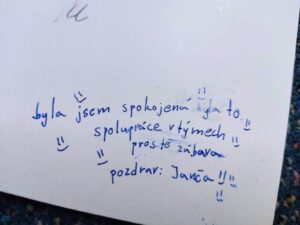 byla jsem spokojená byla to
spolupráce v týmech
prostě zábava
pozdrav: Janča !!